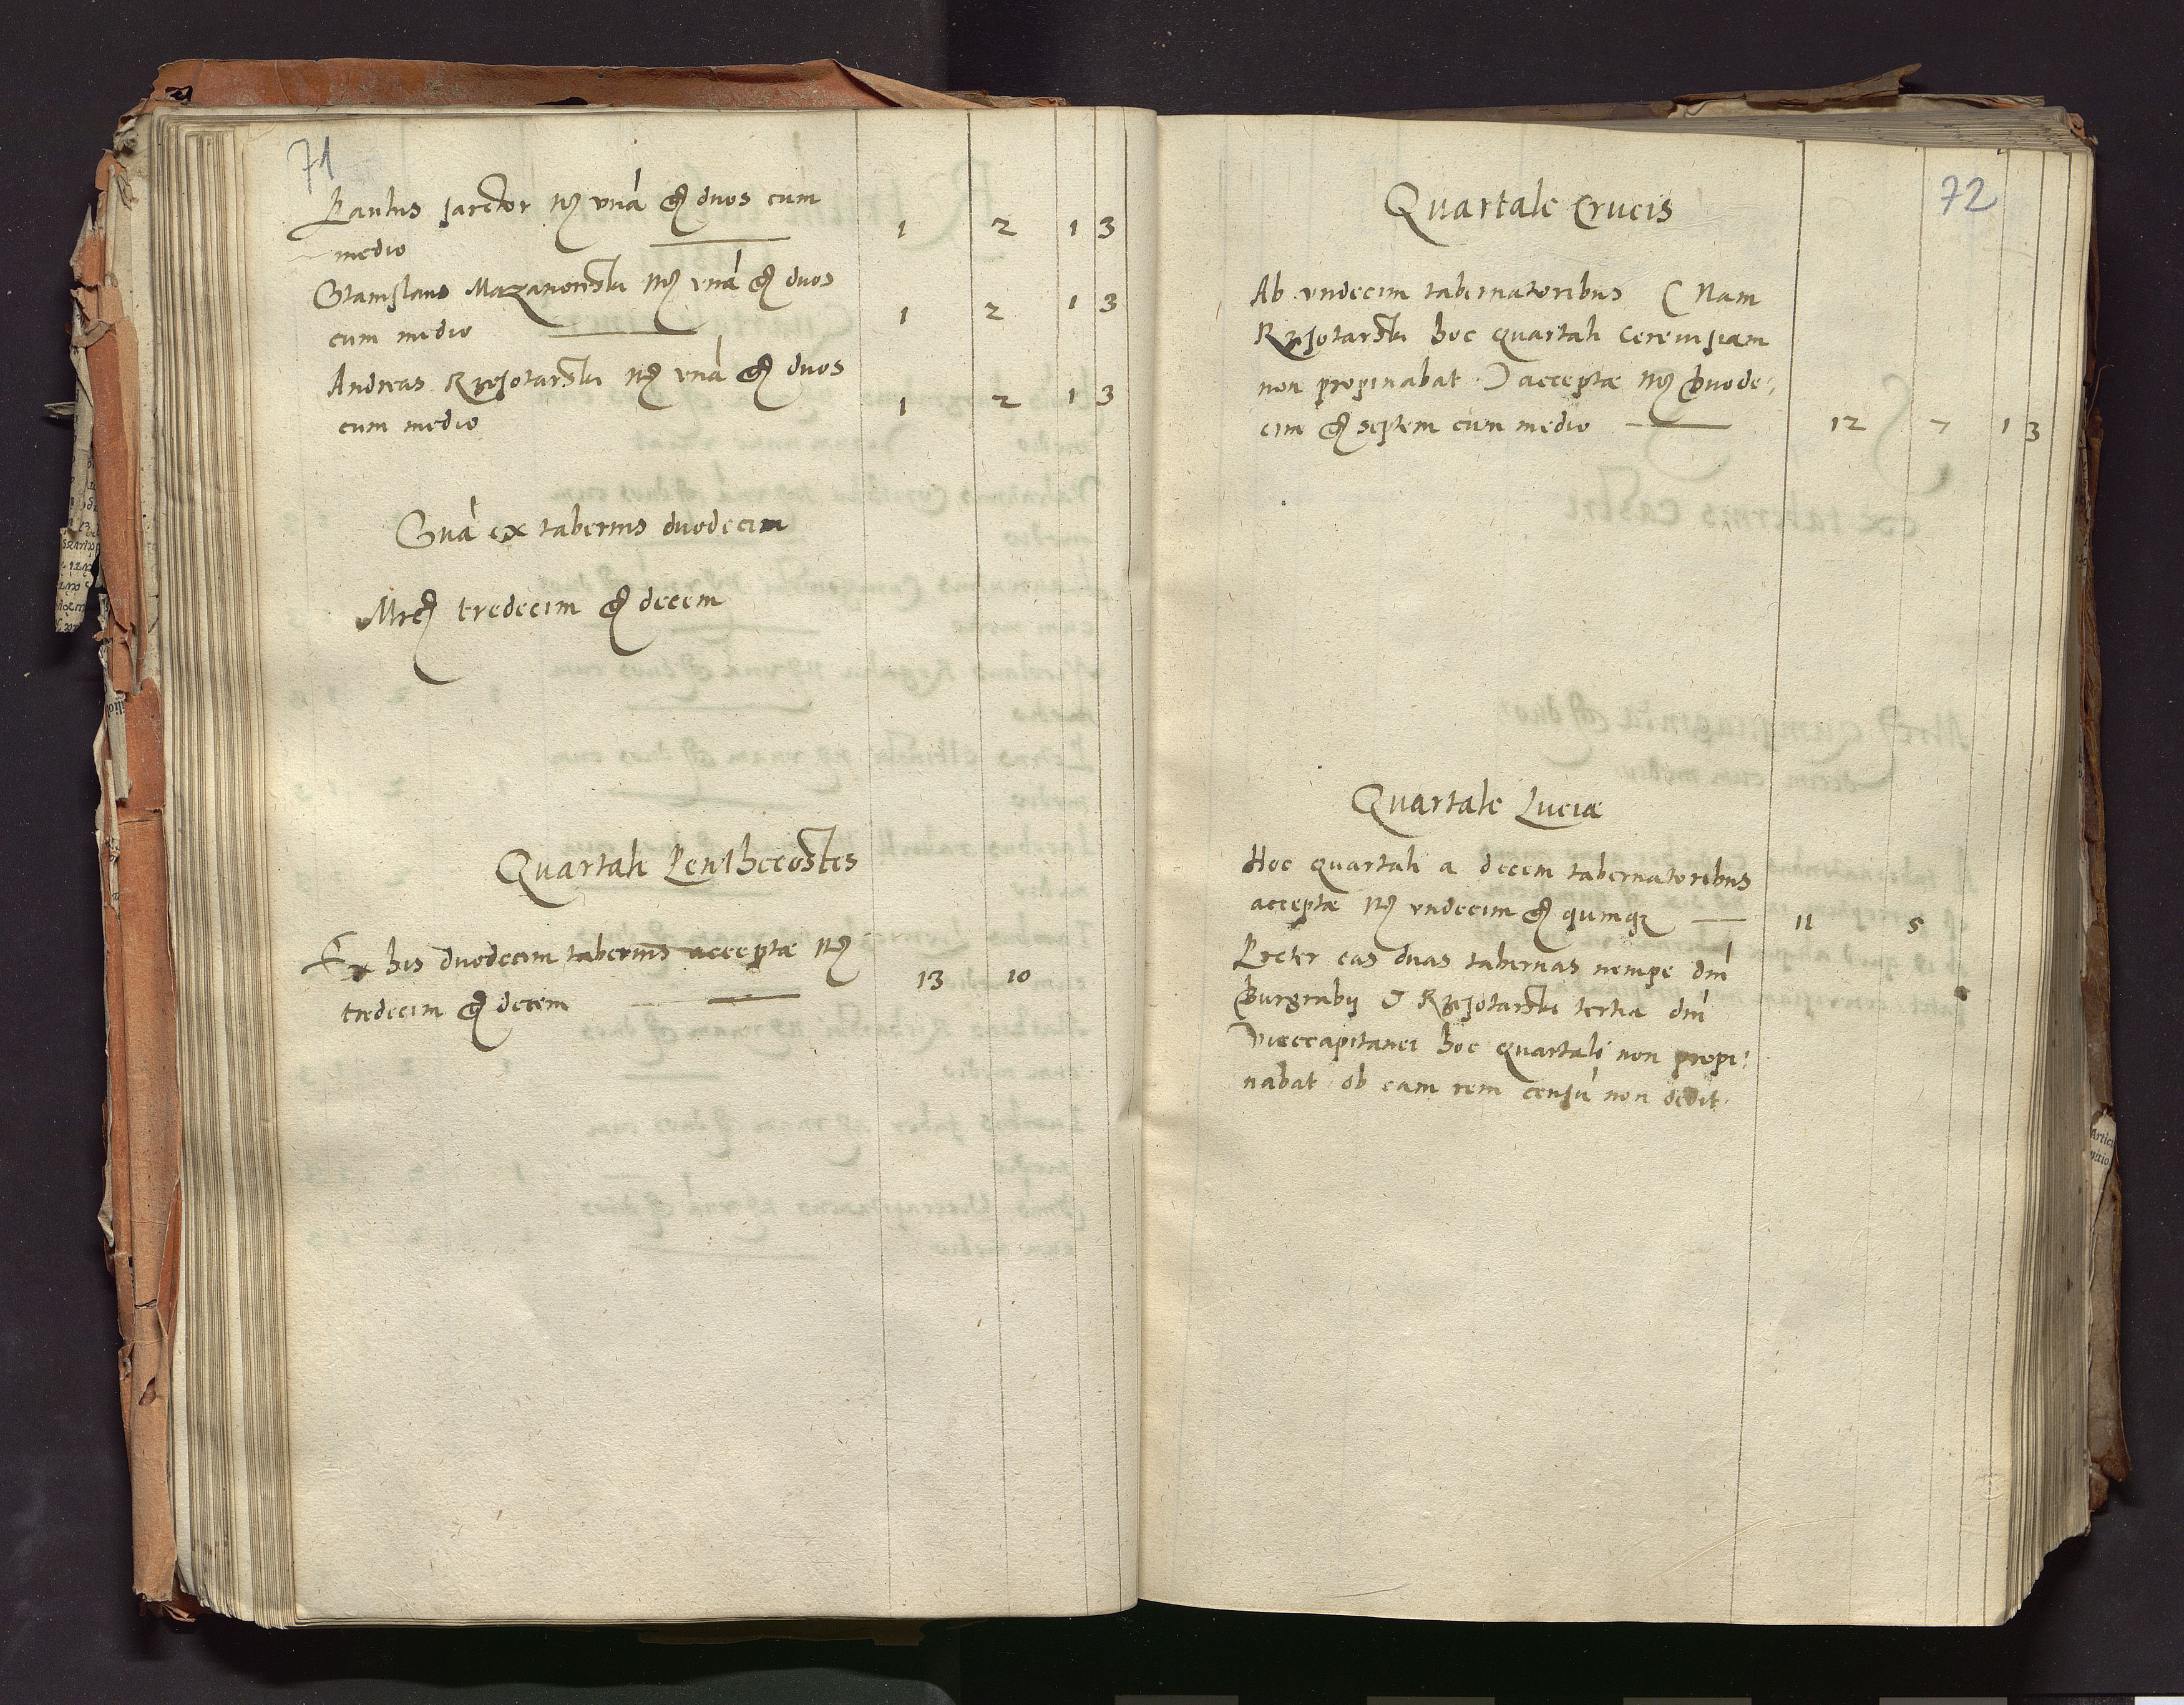 71
Paulus sartor mrc unā gr duos cum
medio 1 2 1 3
Stanislaus Mazanowski mrc unā gr duos
cum medio 1 2 1 3
Andreas Rzeszotarski mrc unā gr duos
cum medio 1 2 1 3
Sūa ex tabernis duodecim
Mrc tredecim gr decem
Quartali Penthecostes
Ex his duodecim tabernis acceptæ mrc
tredecim gr decem 13 10
72
Quartale Crucis
Ab undecim tabernatoribus ( Nam
hoc quartali cerevisiam
non propinabat ) acceptæ mrc duode:
cim gr septem cum medio 12 7 1 3
Quartale Luciæ
Hoc quartali a decem tabernatoribus
acceptæ mrc undecim gr quinqz 11 5
Preter eas duas tabernas nempe dni
Burgrabij & tertia dni
Vicecapitanei hoc quartali non propi:
nabat ob eam rem censū non dedit.